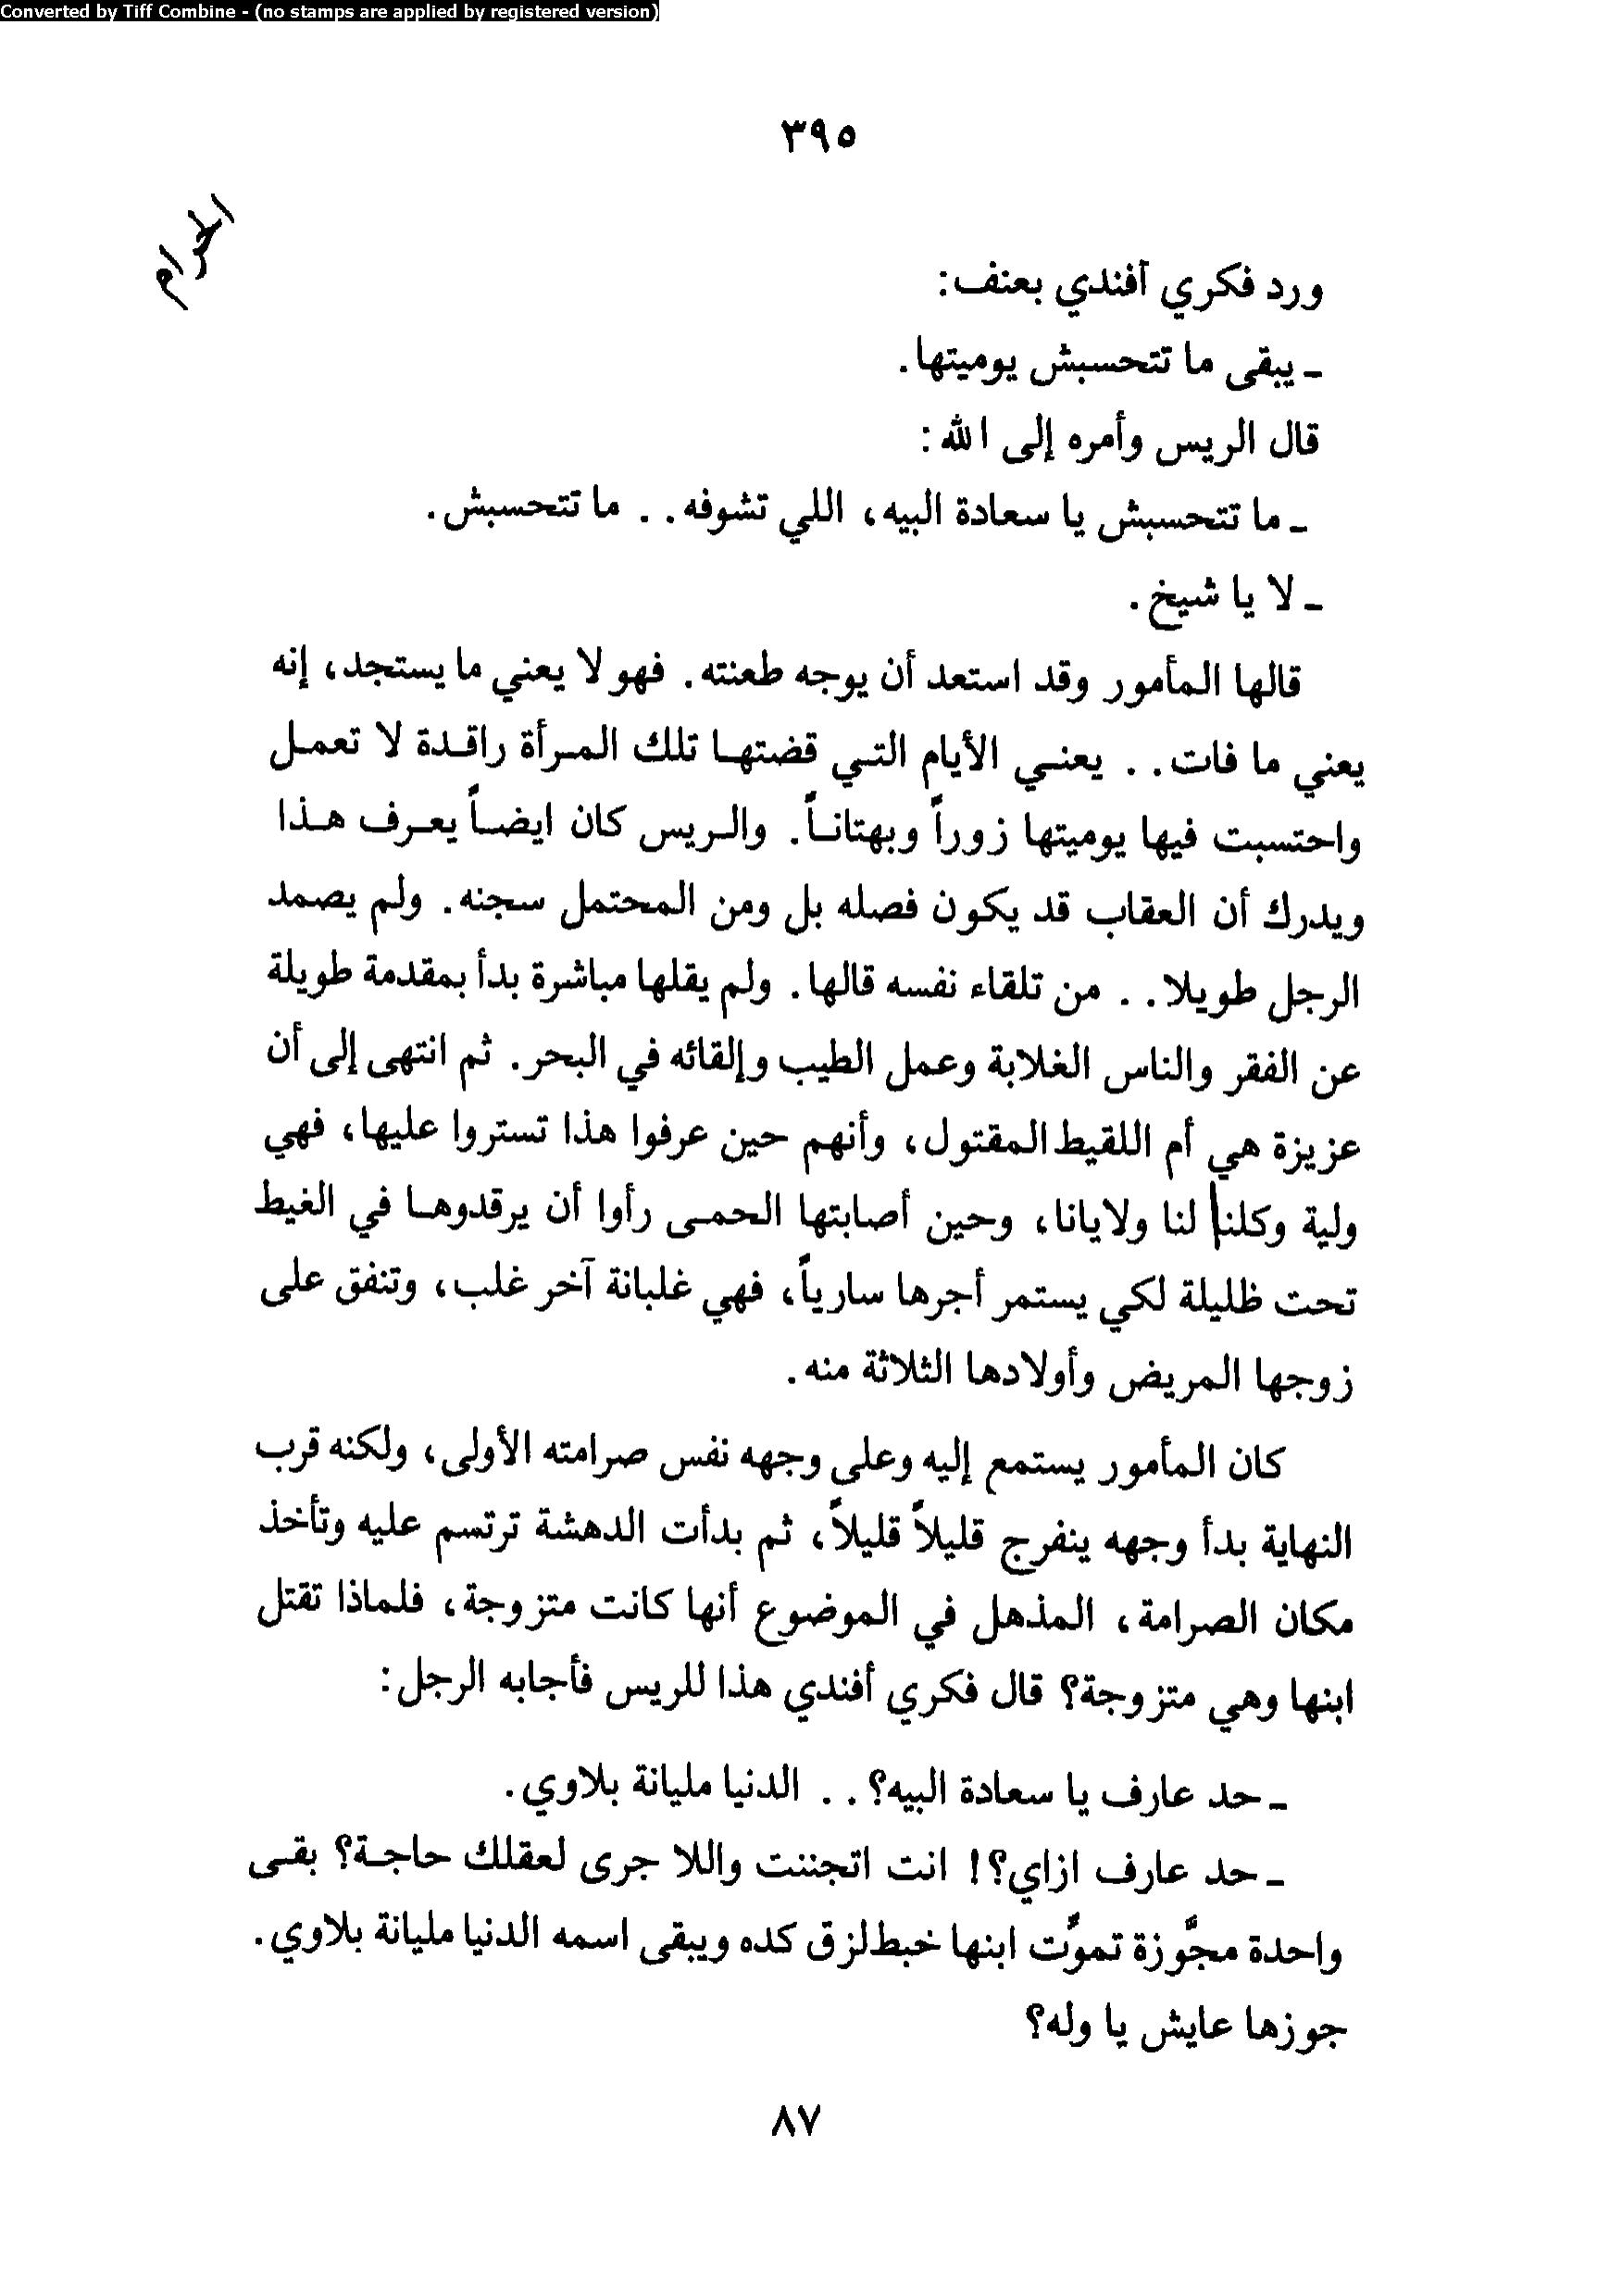 Converted by Tiff Combine - (no stamps are applied by registered version)
٣٩٥
الحرام
ورد فكري أفندي بعنف:
ـ يبقى ما تتحسبش يوميتها.
قال الريس وأمره إلى الله:
ـ ما تتحسبش يا سعادة البيه، اللي تشوفه.. ما تتحسبش.
ـ لا يا شيخ.
قالها المأمور وقد استعد أن يوجه طعنته. فهو لا يعني ما يستجد، إنه
يعني ما فات.. يعني الأيام التي قضتها تلك المرأة راقدة لا تعمل
واحتسبت فيها يوميتها زوراً وبهتاناً. والريس كان ايضاً يعرف هذا
ويدرك أن العقاب قد يكون فصله بل ومن المحتمل سجنه. ولم يصمد
الرجل طويلا.. من تلقاء نفسه قالها. ولم يقلها مباشرة بدأ بمقدمة طويلة
عن الفقر والناس الغلابة وعمل الطيب وإلقائه في البحر. ثم انتهى إلى أن
عزيزة هي أم اللقيط المقتول، وأنهم حين عرفوا هذا تستروا عليها، فهي
ولية وكلنا لنا ولايانا، وحين أصابتها الحمى رأوا أن يرقدوها في الغيط
تحت ظليلة لكي يستمر أجرها سارياً، فهي غلبانة آخر غلب، وتنفق على
زوجها المريض وأولادها الثلاثة منه.
كان المأمور يستمع إليه وعلى وجهه نفس صرامته الأولى، ولكنه قرب
النهاية بدأ وجهه ينفرج قليلاً قليلاً، ثم بدأت الدهشة ترتسم عليه وتأخذ
مكان الصرامة، المذهل في الموضوع أنها كانت متزوجة، فلماذا تقتل
ابنها وهي متزوجة؟ قال فكري أفندي هذا للريس فأجابه الرجل:
ـ حد عارف يا سعادة البيه؟.. الدنيا مليانة بلاوي.
ـ حد عارف ازاي؟! انت اتجننت واللا جرى لعقلك حاجة؟ بقى
واحدة مجّوزة تموّت ابنها خبط لزق كده ويبقى اسمه الدنيا مليانة بلاوي.
جوزها عايش يا وله؟
٨٧